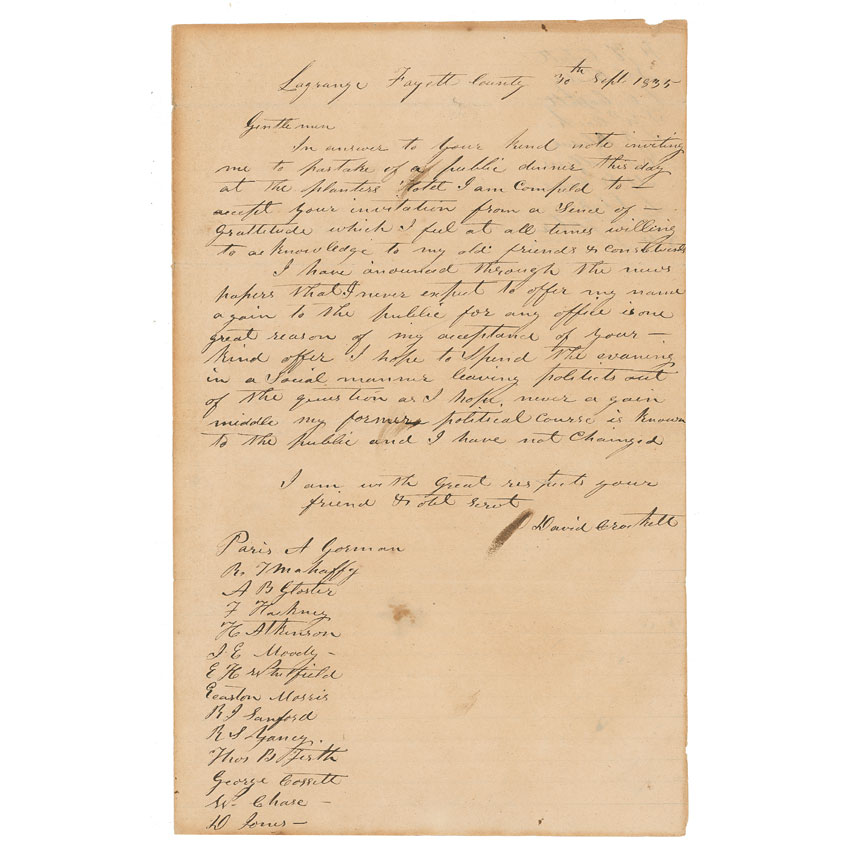 Lagrange Fayett County 30th Sept. 1835
Gentlemen
In answer to your kind note inviting
me to partake of a public dinner this day
at the planters Hotel I am Compeld to —
accept your invitation from a Sence of —
Grattitude which I feel at all times willing
to acknowledge to my old friends & Constituents
I have anounced through the news
papers that I never expect to offer my name
again to the public for any office is one
great reason of my acceptance of your —
kind offer I hope to Spend the evaning
in a Social manner leaving politicts out
of the question as I hope never a gain
middle my former political Course is known
to the public and I have not Changed
I am with Great respects your
friend & obt servt
David Crockett
Paris A Gorman
R. T Mahaffy
A B Gloster
F Hackney
H Atkinson
J E Moody —
E H Whitfield
Easton Morris
R J Sanford
R S Yancy.
Thos B Firth
George Cossett
W. Chase —
D Jones —